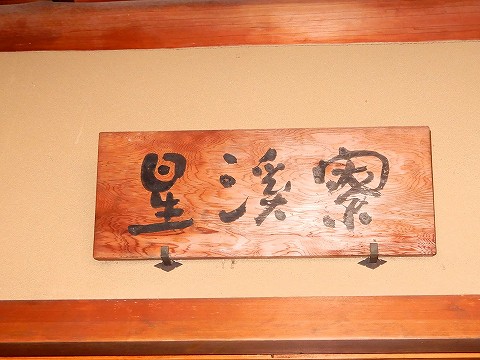 星溪寮